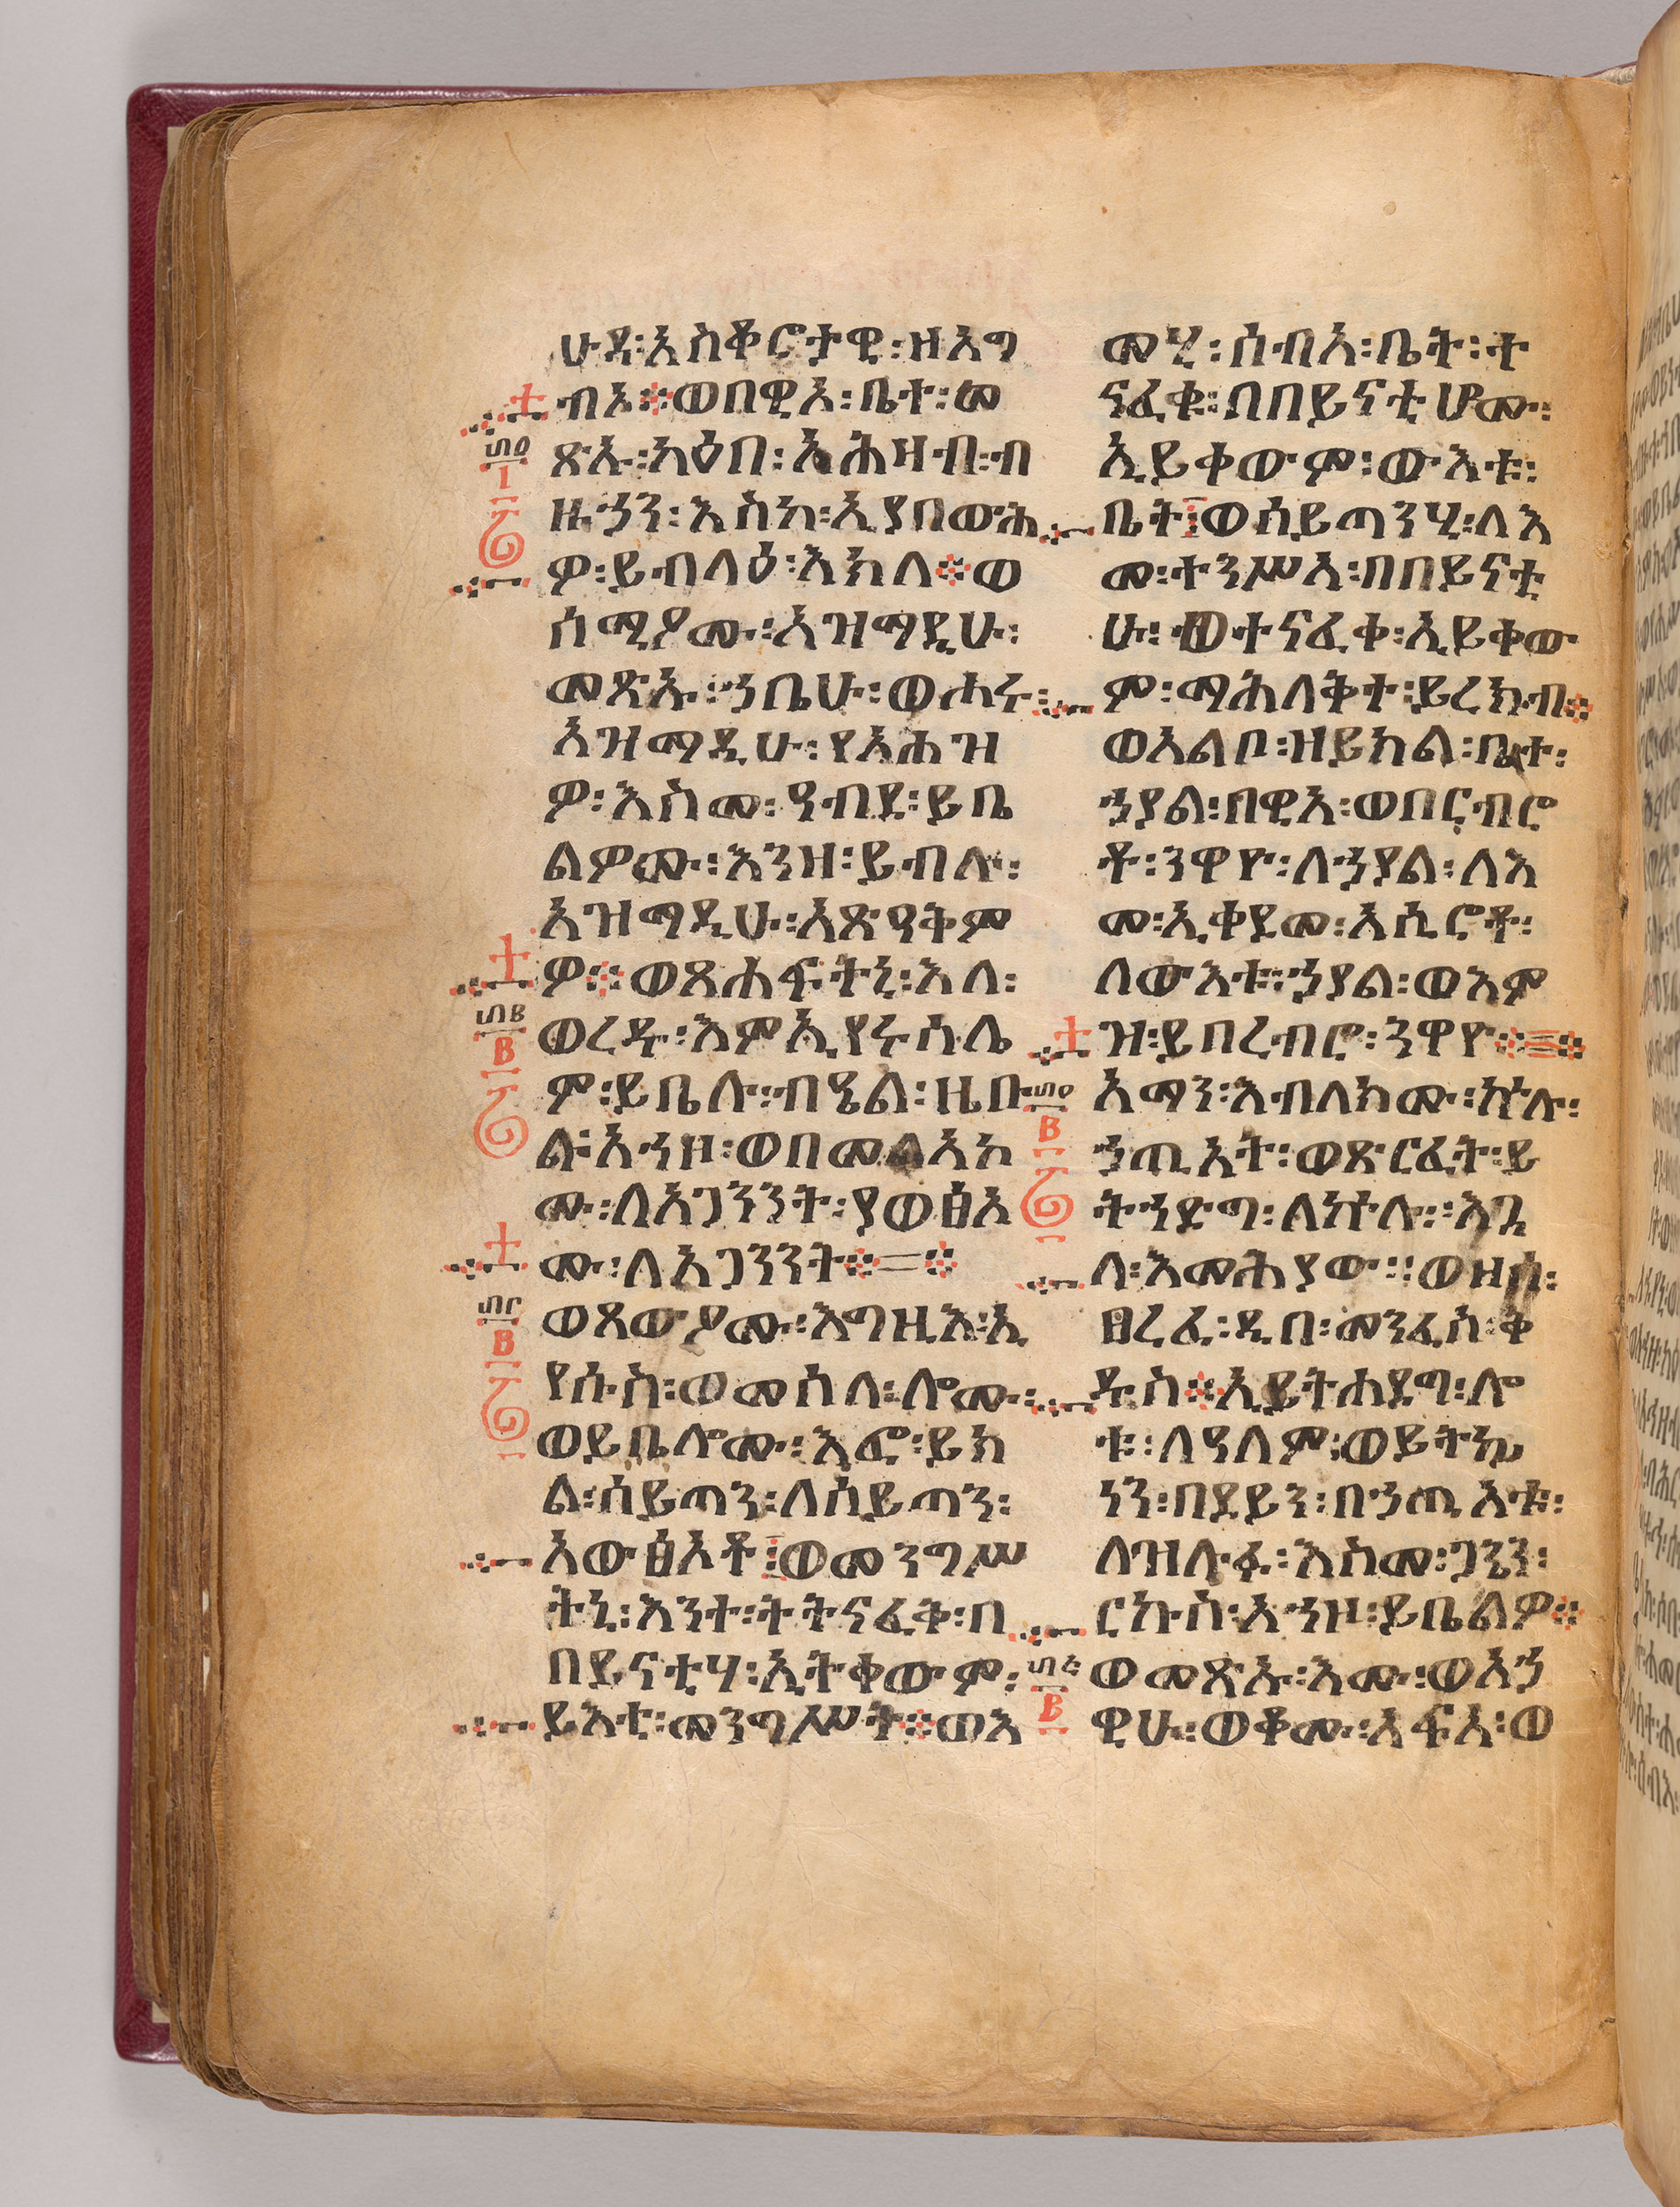 ሁዳ፡አስቆሮታዊ፡ዘአግ
ብኦ፨ወበዊኦ፡ቤተ፡መ
ጽኡ፡ካዕበ፡አሕዛብ፡ብ
ዙኃን፡እስከ፡ኢያበውሕ
ዎ፡ይብላዕ፡እክለ፨ወ
ሰሚዖሙ፡አዝማዲሁ፡
መጽኡ፡ኀቤሁ፡ወሖሩ፡
አዝማዲሁ፡የአሐዝ
ዎ፡እስመ፡ዓብደ፡ይቤ
ልዎሙ፡እንዘ፡ይብሉ፡
አዝማዲሁ፡አጽዓቅም
ዎ፨ወጸሐፍትኒ፡እለ፡
ወረዱ፡እምኢየሩሳሌ
ም፡ይቤሉ፡ብዔል፡ዜቡ
ል፡አኀዞ፡ወበመልአኮ
ሙ፡ለአጋንንት፡ያወፅአ
ሙ፡ለአጋንንት፨=፨
ወጸውዖሙ፡እግዚእ፡ኢ
የሱስ፡ወመሰለ፡ሎሙ፡
ወይቤሎሙ፡እፎ፡ይክ
ል፡ሰይጣን፡ለሰይጣን፡
አውፅኦቶ፡ወመንግሥ
ትኒ፡እንተ፡ትትናፈቅ፡በ
በይናቲሃ፡ኢትቀውም፡
ይእቲ፡መንግሥት፨ወእ
መሂ፡ሰብአ፡ቤት፡ተ
ናፈቁ፡በበይናቲሆሙ፡
ኢይቀውም፡ውእቱ፡
ቤት፡ወሰይጣንሂ፡ለእ
መ፡ተንሥአ፡በበይናቲ
ሁ፡ወተናፈቀ፡ኢይቀው
ም፡ማሕለቅተ፡ይረክብ፨
ወአልቦ፡ዘይክል፡ቤተ፡
ኃያል፡በዊአ፡ወበርብሮ
ቶ፡ንዋዮ፡ለኃያል፡ለእ
መ፡ኢቀደመ፡አሲሮቶ፡
ለውእቱ፡ኃያል፡ወእም
ዝ፡ይበረብሮ፡ንዋዮ፨=፨
አማን፡እብለክሙ፡ኵሉ፡
ኃጢአት፡ወጽርፈት፡ይ
ትኀድግ፡ለኵሉ፡፡እጓ
ለ፡እመሕያው፡፡ወዘሰ፡
ፀረፈ፡ዲበ፡መንፈስ፡ቅ
ዱስ፨ኢይትሐደግ፡ሎ
ቱ፡ለዓለም፡ወይትኴ
ነን፡በደይን፡በኃጢአቱ፡
ለዝሉፉ፡እስመ፡ጋኔን፡
ርኩስ፡አኀዞ፡ይቤልዎ፨
ወመጽኡ፡እሙ፡ወአኃ
ዊሁ፡ወቆሙ፡አፍአ፡ወ